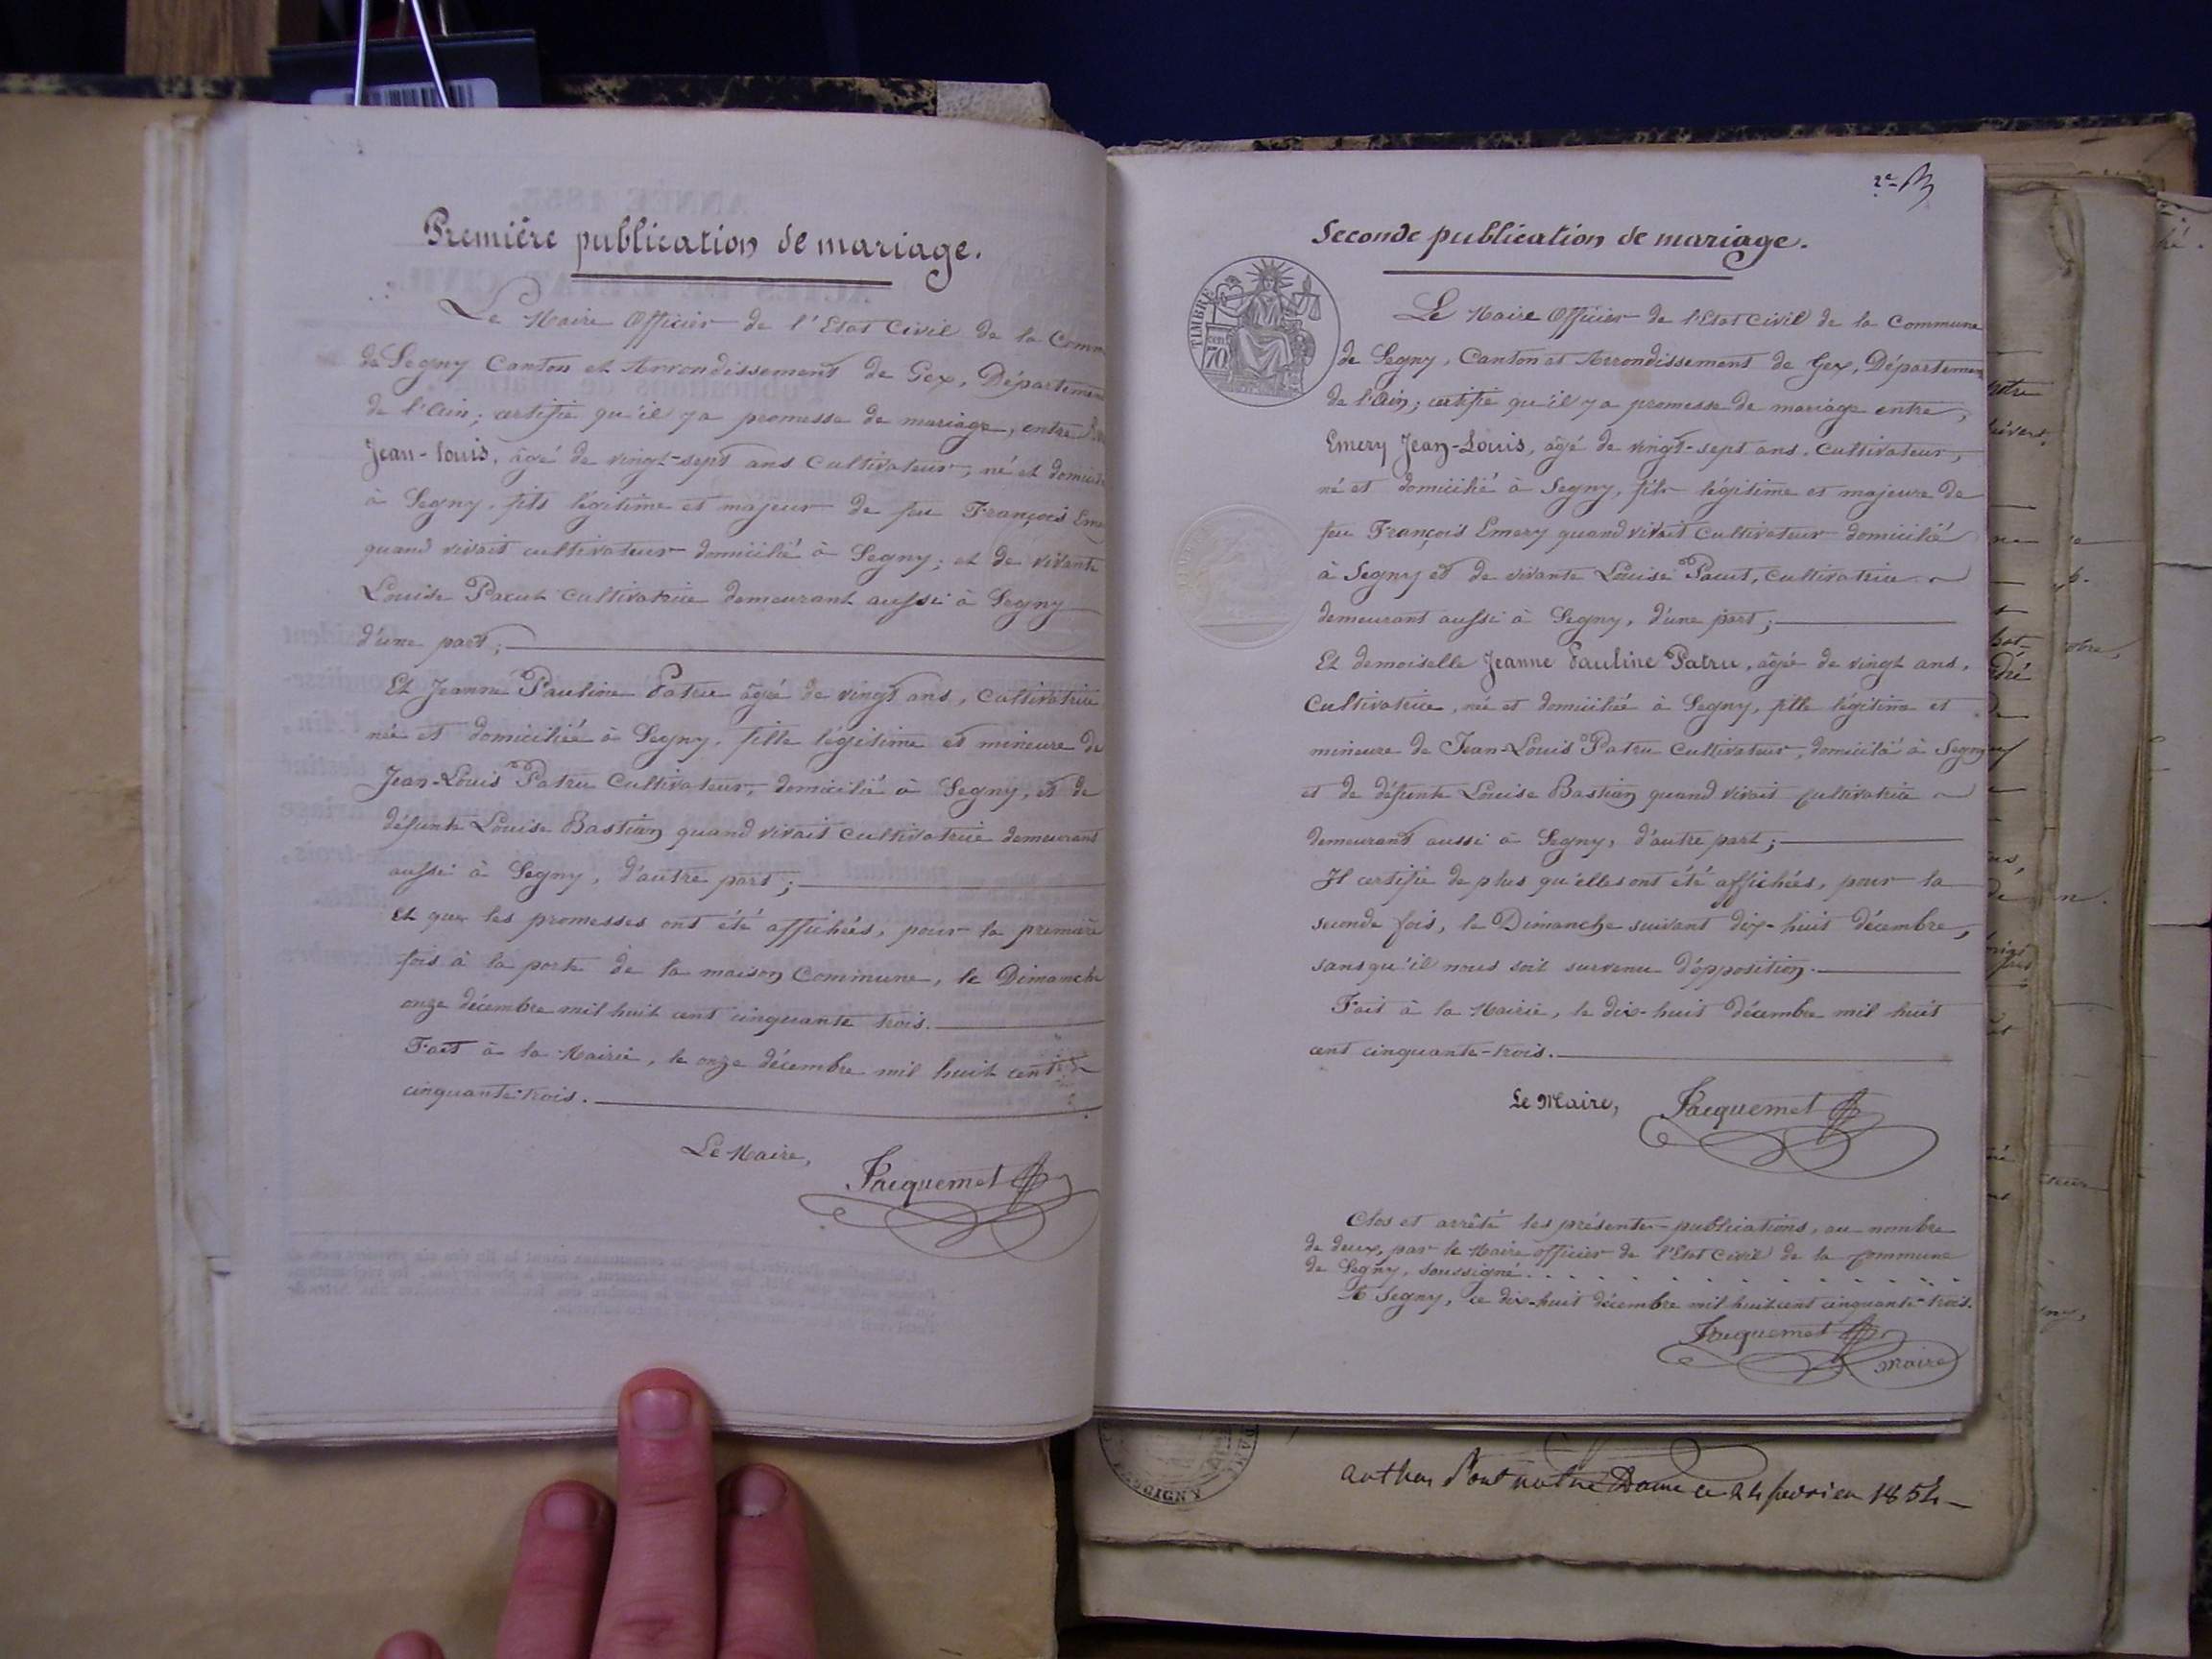 Première publication de mariage.
Le Maire Officier de l'Etat Civil de la Comm
de Segny Canton et Arrondissement de Gex, Départemen
de l'Ain; certifie qu'il y a promesse de mariage, entre
Jean-Louis, âgé de vingt-sept ans Cultivateur, né et domicil
à Segny, fils légitime et majeur de feu François Eme
quand vivait cultivateur domicilié à Segny; et de vivante
Louise Pacut Cultivatrice demeurant aussi à Segny
d'une part;
Et Jeanne Pauline Patru âgée de vingt ans, Cultivatrice
née et domiciliée à Segny, fille légitime et mineure de
Jean-Louis Patru Cultivateur, domicilié à Segny, et de
défunte Louise Bastian quand vivait Cultivatrice demeurant
aussi à Segny, d'autre part;
Et que les promesses ont été affichées, pour la première
fois à la porte de la maison Commune, le Dimanche
onze décembre mil huit cent cinquante trois.
Fait à la Mairie, le onze décembre mil huit cent
cinquante-trois.
Le Maire,
Jacquemet
2e
Seconde publication de mariage.
TIMBRE
70
Le Maire Officier de l'Etat Civil de la Commune
de Segny, Canton et Arrondissement de Gex, Départemen
de l'Ain; certifie qu'il y a promesse de mariage entre,
Emery Jean-Louis, âgé de vingt-sept ans, Cultivateur,
né et domicilié à Segny, fils légitime et majeure de
feu François Emery quand vivait Cultivateur domicilié
à Segny et de vivante Louise Pacut, Cultivatrice
demeurant aussi à Segny, d'une part;
Et demoiselle Jeanne Pauline Patru, âgée de vingt ans,
Cultivatrice, née et domiciliée à Segny, fille légitime et
mineure de Jean-Louis Patru Cultivateur, domicilié à Segny
et de défunte Louise Bastian quand vivait Cultivatrice
demeurant aussi à Segny, d'autre part;
Il certifie de plus qu'elles ont été affichées, pour la
seconde fois, le Dimanche suivant dix-huit décembre,
sans qu'il nous soit survenu d'opposition.
Fait à la Mairie, le dix-huit décembre mil huit
cent cinquante-trois.
Le Maire,
Jacquemet
Clos et arrêté les présentes publications, au nombre
de deux, par le Maire officier de l'Etat Civil de la Commune
de Segny, soussigné
A Segny, le dix-huit décembre mil huit cent cinquante-trois.
Jacquemet
maire
notre Dame ce 24 fevrier 1854